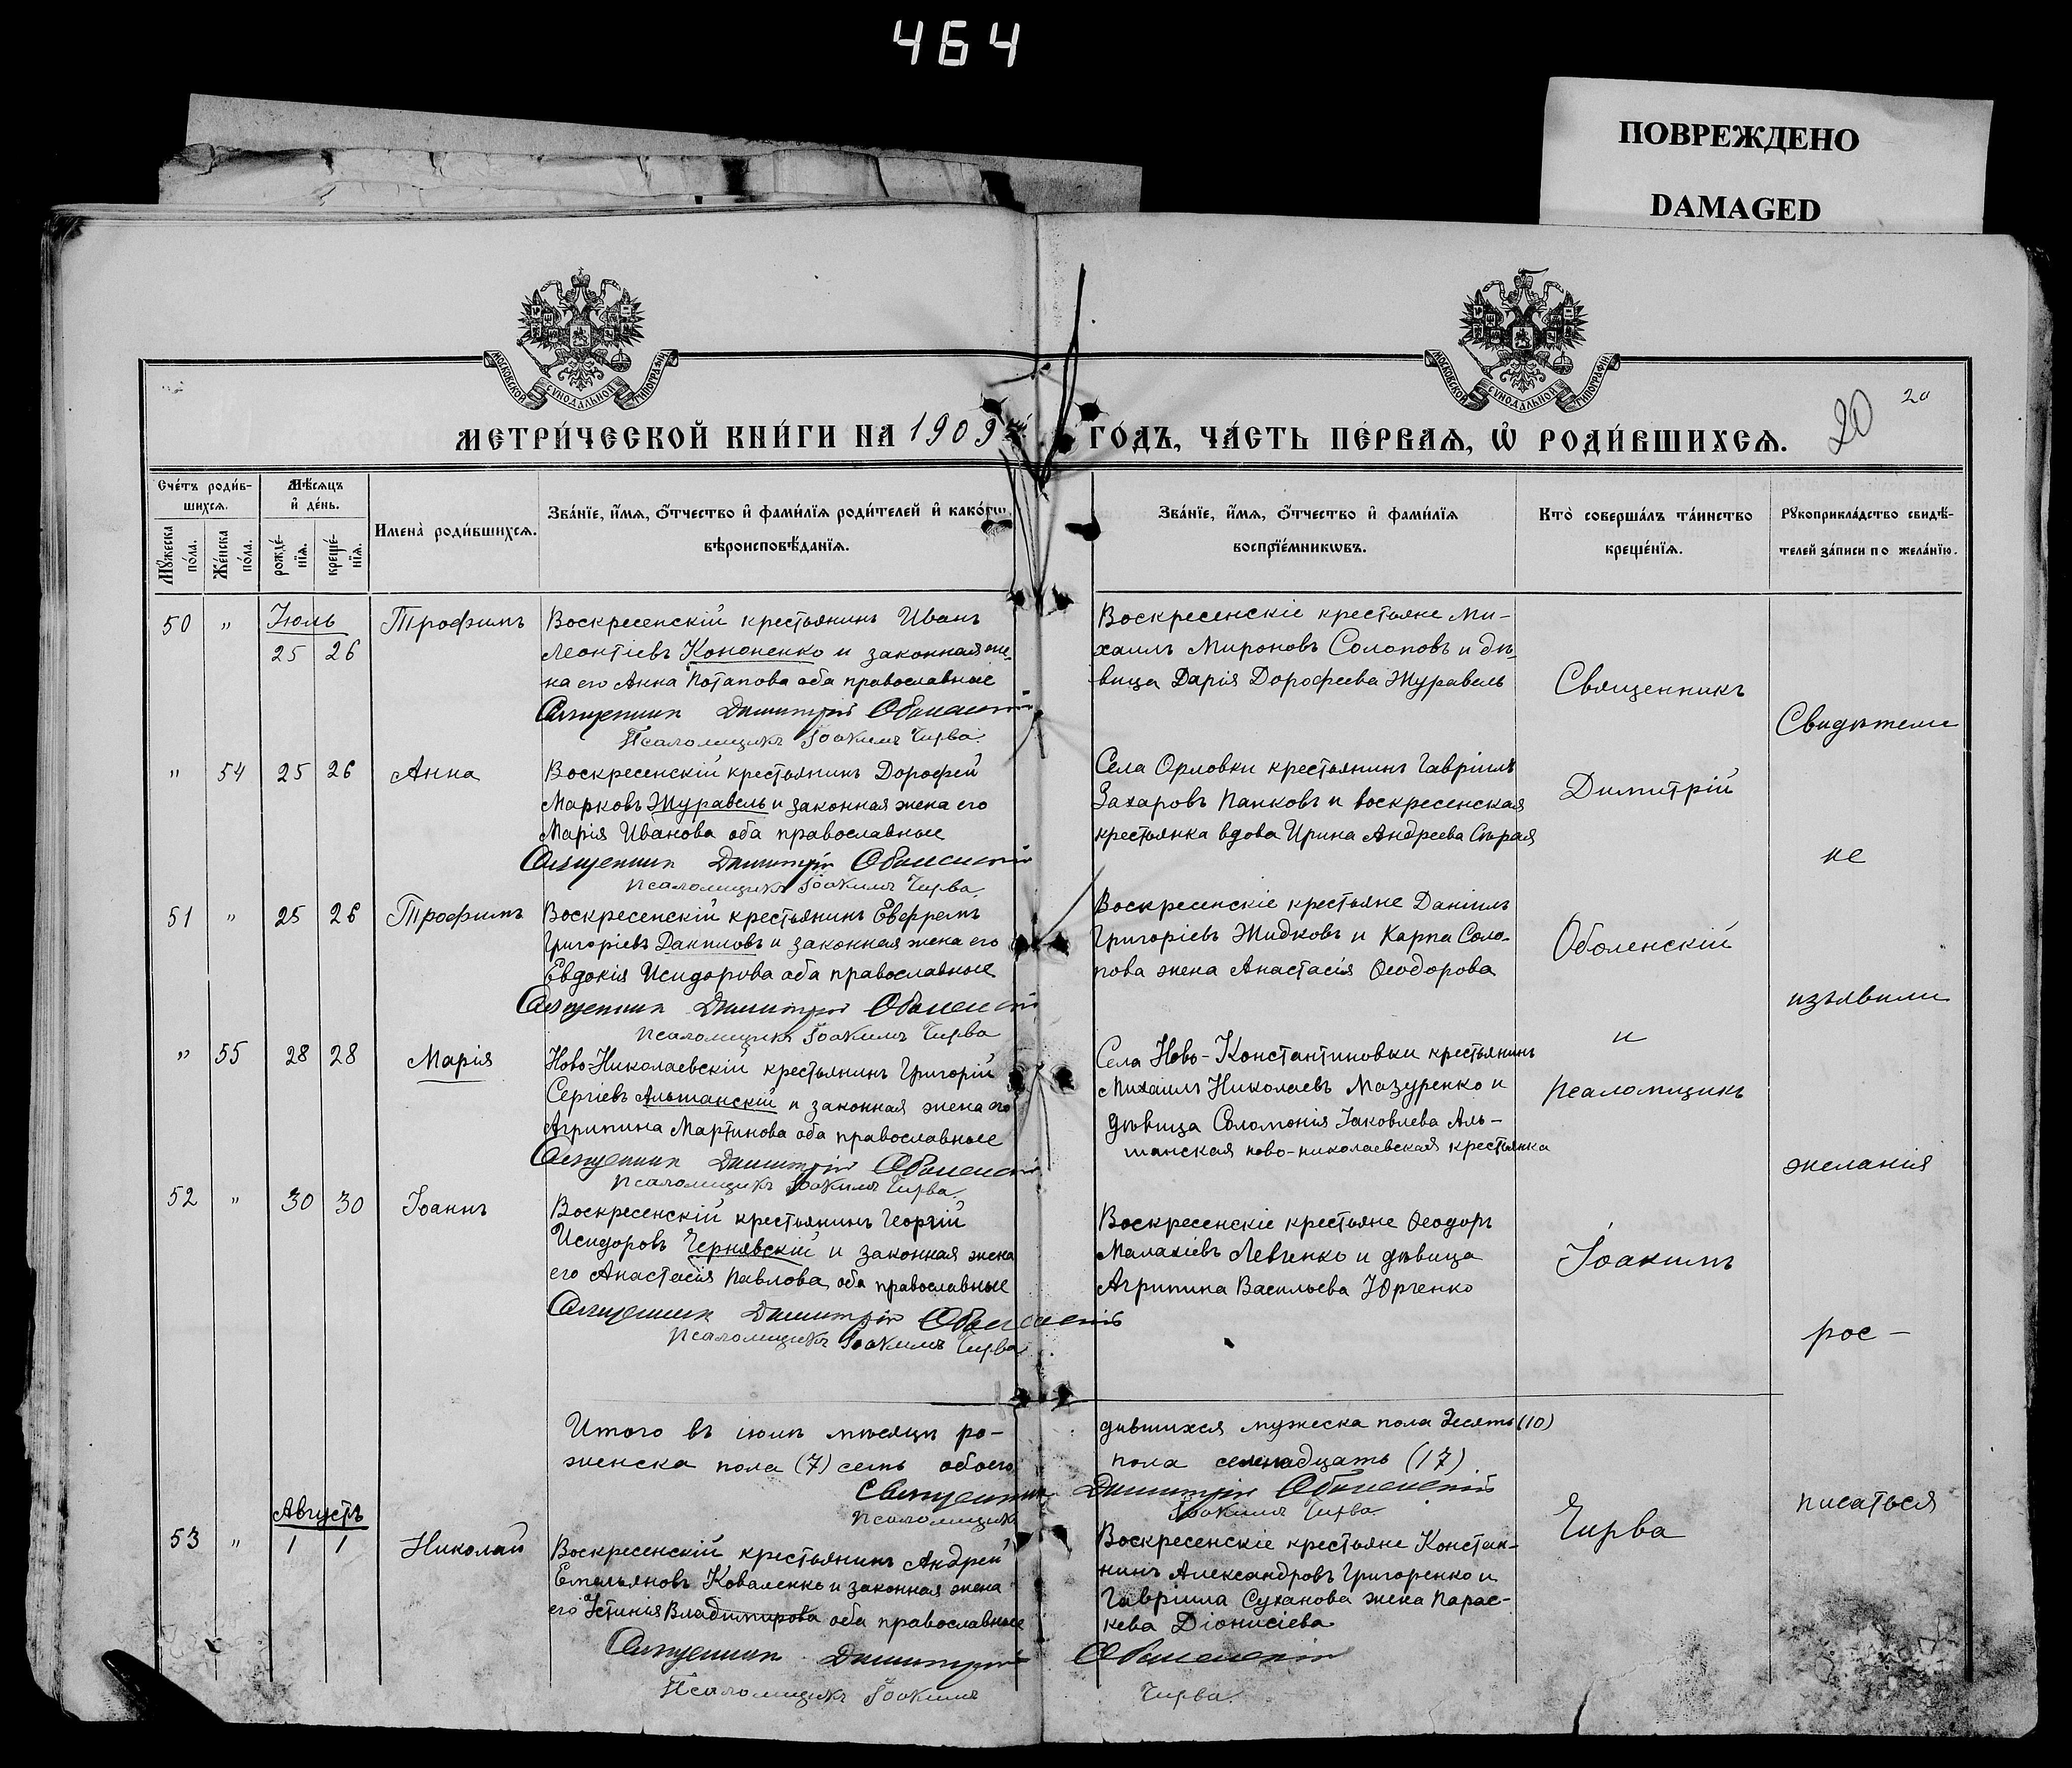 464
ПОВРЕЖДЕНО
DAMAGED
МОСКОВСКОЙ СѴНОДАЛЬНОЙ ТИПОГРАФІИ
МОСКОВСКОЙ СѴНОДАЛЬНОЙ ТИПОГРАФІИ
20
20
МЕТРИ́ЧЕСКОЙ КНИ́ГИ НА 1909
ГО́ДЪ, ЧА́СТЬ ПЕ́РВАѦ, Ѡ҆ РОДИ́ВШИХСѦ.
Сче́тъ роди́в-
шихсѧ.
Мꙋ́жеска по́ла.
Же́нска по́ла.
Мѣ́сѧцъ
и҆ де́нь.
рожде́-
нїѧ.
креще́-
нїѧ.
Имена̀ роди́вшихсѧ.
Зва́нїе, и҆́мѧ, ѻ҆́тчество и҆ фами́лїѧ роди́телей и҆ како́гѡ
вѣроисповѣ́данїѧ.
Зва́нїе, и҆́мѧ, ѻ҆́тчество и҆ фами́лїѧ
воспрїе́мникѡвъ.
Кто̀ соверша́лъ та́инство
креще́нїѧ.
Рꙋкоприкла́дство свидѣ́-
телей за́писи по жела́нїю.
50 " Іюль
25 26
Трофимъ
Воскресенскій крестьянинъ Иванъ
Леонтіевъ Кононенко и законная же-
на его Анна Потапова оба православные
Священник Димитрій Оболенский
Псаломщикъ Іоакимъ Чирва.
Воскресенскіе крестьяне Ми-
хаилъ Мироновъ Солоповъ и дѣ-
вица Дарія Дорофеева Журавель
" 54 25 26 Анна
Воскресенскій крестьянинъ Дорофей
Марковъ Журавель и законная жена его
Марія Иванова оба православные
Священник Димитрій Оболенскій
Псаломщикъ Іоакимъ Чирва.
Села Орловки крестьянинъ Гавріилъ
Захаровъ Папковъ и воскресенская
крестьянка вдова Ирина Андреева Сѣрая
51 " 25 26 Трофимъ
Воскресенскій крестьянинъ Евфремъ
Григоріевъ Даниловъ и законная жена его
Евдокія Исидорова оба православные
Священник Димитрій Оболенскій
Псаломщикъ Іоакимъ Чирва
Воскресенскіе крестьяне Даніилъ
Григоріевъ Жидковъ и Карпа Соло-
пова жена Анастасія Ѳеодорова
" 55 28 28 Марія
Ново-Николаевскій крестьянинъ Григорій
Сергіевъ Альшанскій и законная жена его
Агрипина Мартинова оба православные
Священник Димитрій Оболенскій
Псаломщикъ Іоакимъ Чирва.
Села Ново-Константиновки крестьянинъ
Михаилъ Николаевъ Мазуренко и
дѣвица Соломонія Іаковлева Аль-
шанская ново-николаевская крестьянка
52 " 30 30 Іоаннъ
Воскресенскій крестьянинъ Георгій
Исидоровъ Чернявскій и законная жена
его Анастасія Павлова оба православные
Священник Димитрій Оболенскій
Псаломщикъ Іоакимъ Чирва
Воскресенскіе крестьяне Ѳеодоръ
Малахіевъ Левченко и дѣвица
Агрипина Васильева Юрченко
Итого въ іюлѣ мѣсяцѣ ро-
дившихся мужеска пола десять (10)
женска пола (7) семь обоего
пола семнадцать (17)
Священник Димитрій Оболенскій
Псаломщикъ Іоакимъ Чирва.
Августъ
53 " 1 1 Николай
Воскресенскій крестьянинъ Андрей
Емельяновъ Коваленко и законная жена
его Устинія Владимирова оба православные
Священник Димитрій Оболенскій
Псаломщикъ Іоакимъ Чирва.
Воскресенскіе крестьяне Констан-
тинъ Александровъ Григоренко и
Гавріила Суханова жена Парас-
кева Діонисіева
Священникъ
Димитрій
Оболенскій
и
псаломщикъ
Іоакимъ
Чирва
Свидѣтели
не
изъявили
желанія
рос-
писаться